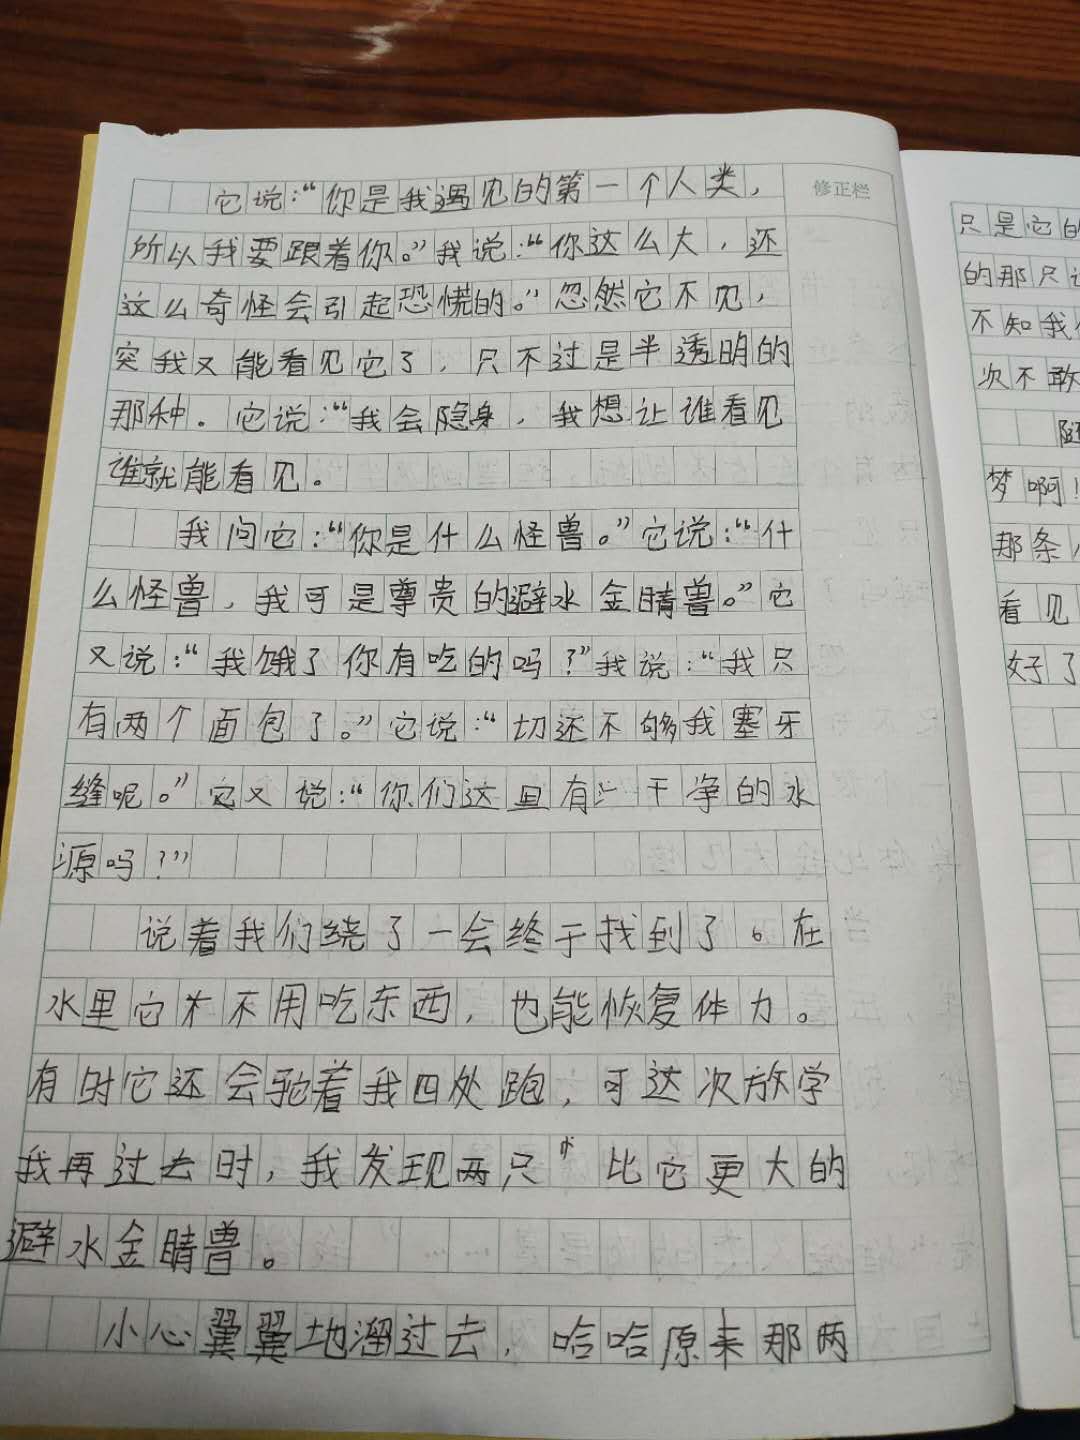 它说：“你是我遇见的第一个人类，
修正栏
所以我要跟着你。”我说：“你这么大，还
这么奇怪会引起恐慌的。”忽然它不见，
突我又能看见它了，只不过是半透明的
那种。它说：“我会隐身，我想让谁看见
谁就能看见。
我问它：“你是什么怪兽。”它说：“什
么怪兽，我可是尊贵的避水金睛兽。”它
又说：“我饿了你有吃的吗？”我说：“我只
有两个面包了。”它说：“切还不够我塞牙
缝呢。”它又说：“你们这且有干净的水
源吗？”
说着我们绕了一会终于找到了。在
水里它不用吃东西，也能恢复体力。
有时它还会驼着我四处跑，可这次放学
我再过去时，我发现两只比它更大的
避水金睛兽。
小心翼翼地溜过去，哈哈原来那两
只是它的
的那只
不知我
次不敢
梦啊！
那条
看见
好了